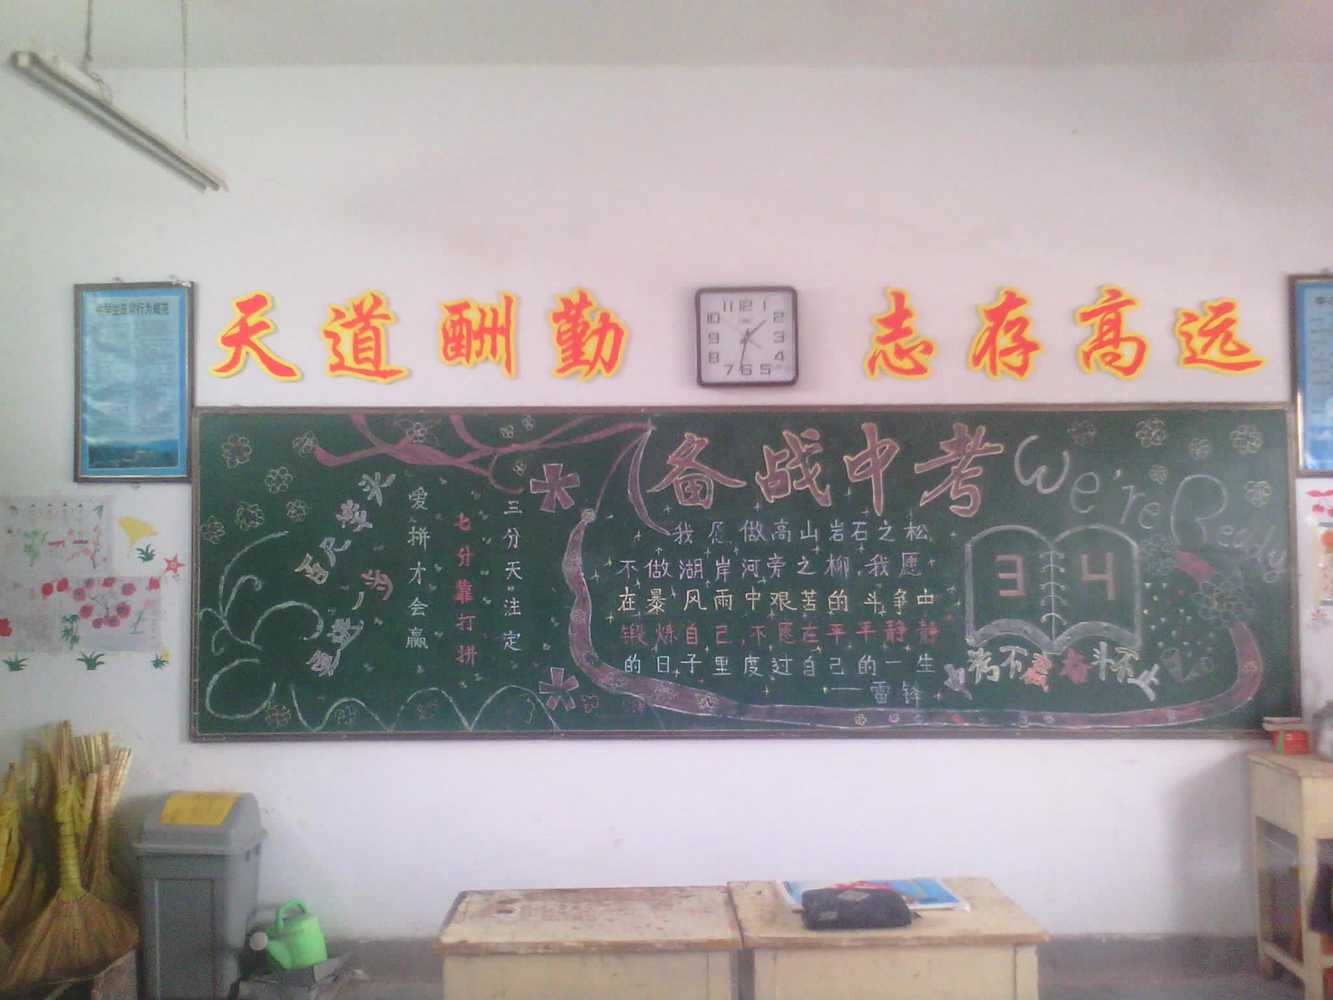 天道酬勤
志存高远
中学生日常行为规范
11 12 1
10 2
9 3
8 4
7 6 5
备战中考
We're Ready
百尺竿头
更进一步
三分天注定
七分靠打拼
爱拼才会赢
我愿做高山岩石之松
不做湖岸河旁之柳.我愿
在暴风雨中艰苦的斗争中
锻炼自己.不愿在平平静静
的日子里度过自己的一生
——雷锋
34
奋斗不